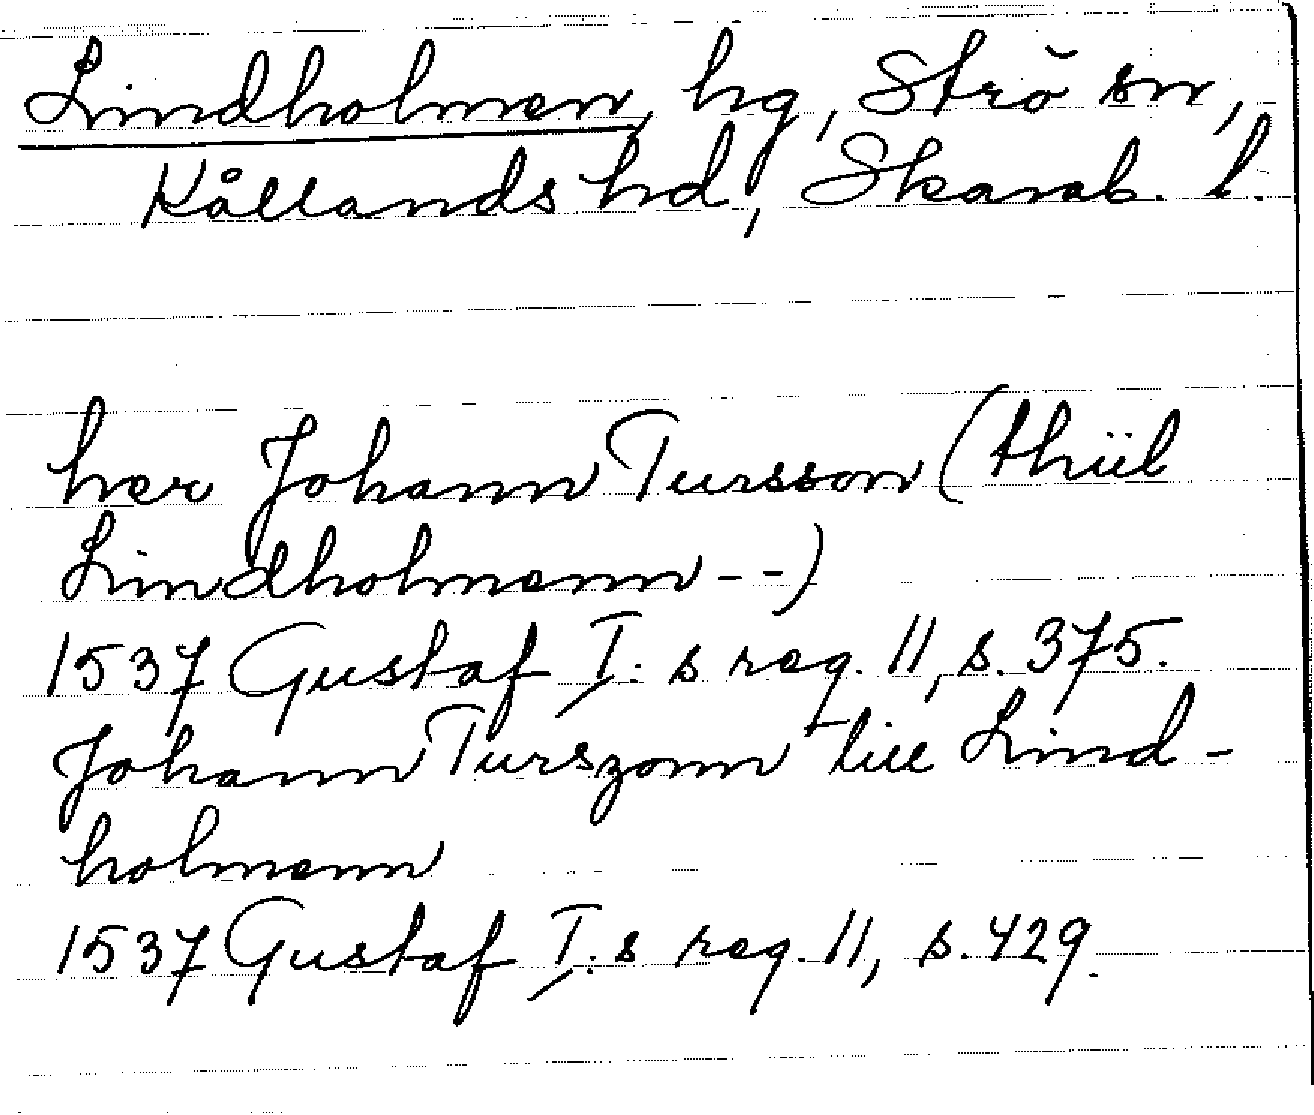 Lindholmen, hg, Strö sn,
Kållands hd, Skarab. l.
her Johann Tursson (thiil
Lindholmenn - -)
1537 Gustaf I:s reg. 11, s. 375.
Johann Turszonn till Lind-
holmenn
1537 Gustaf I:s reg. 11, s. 429.